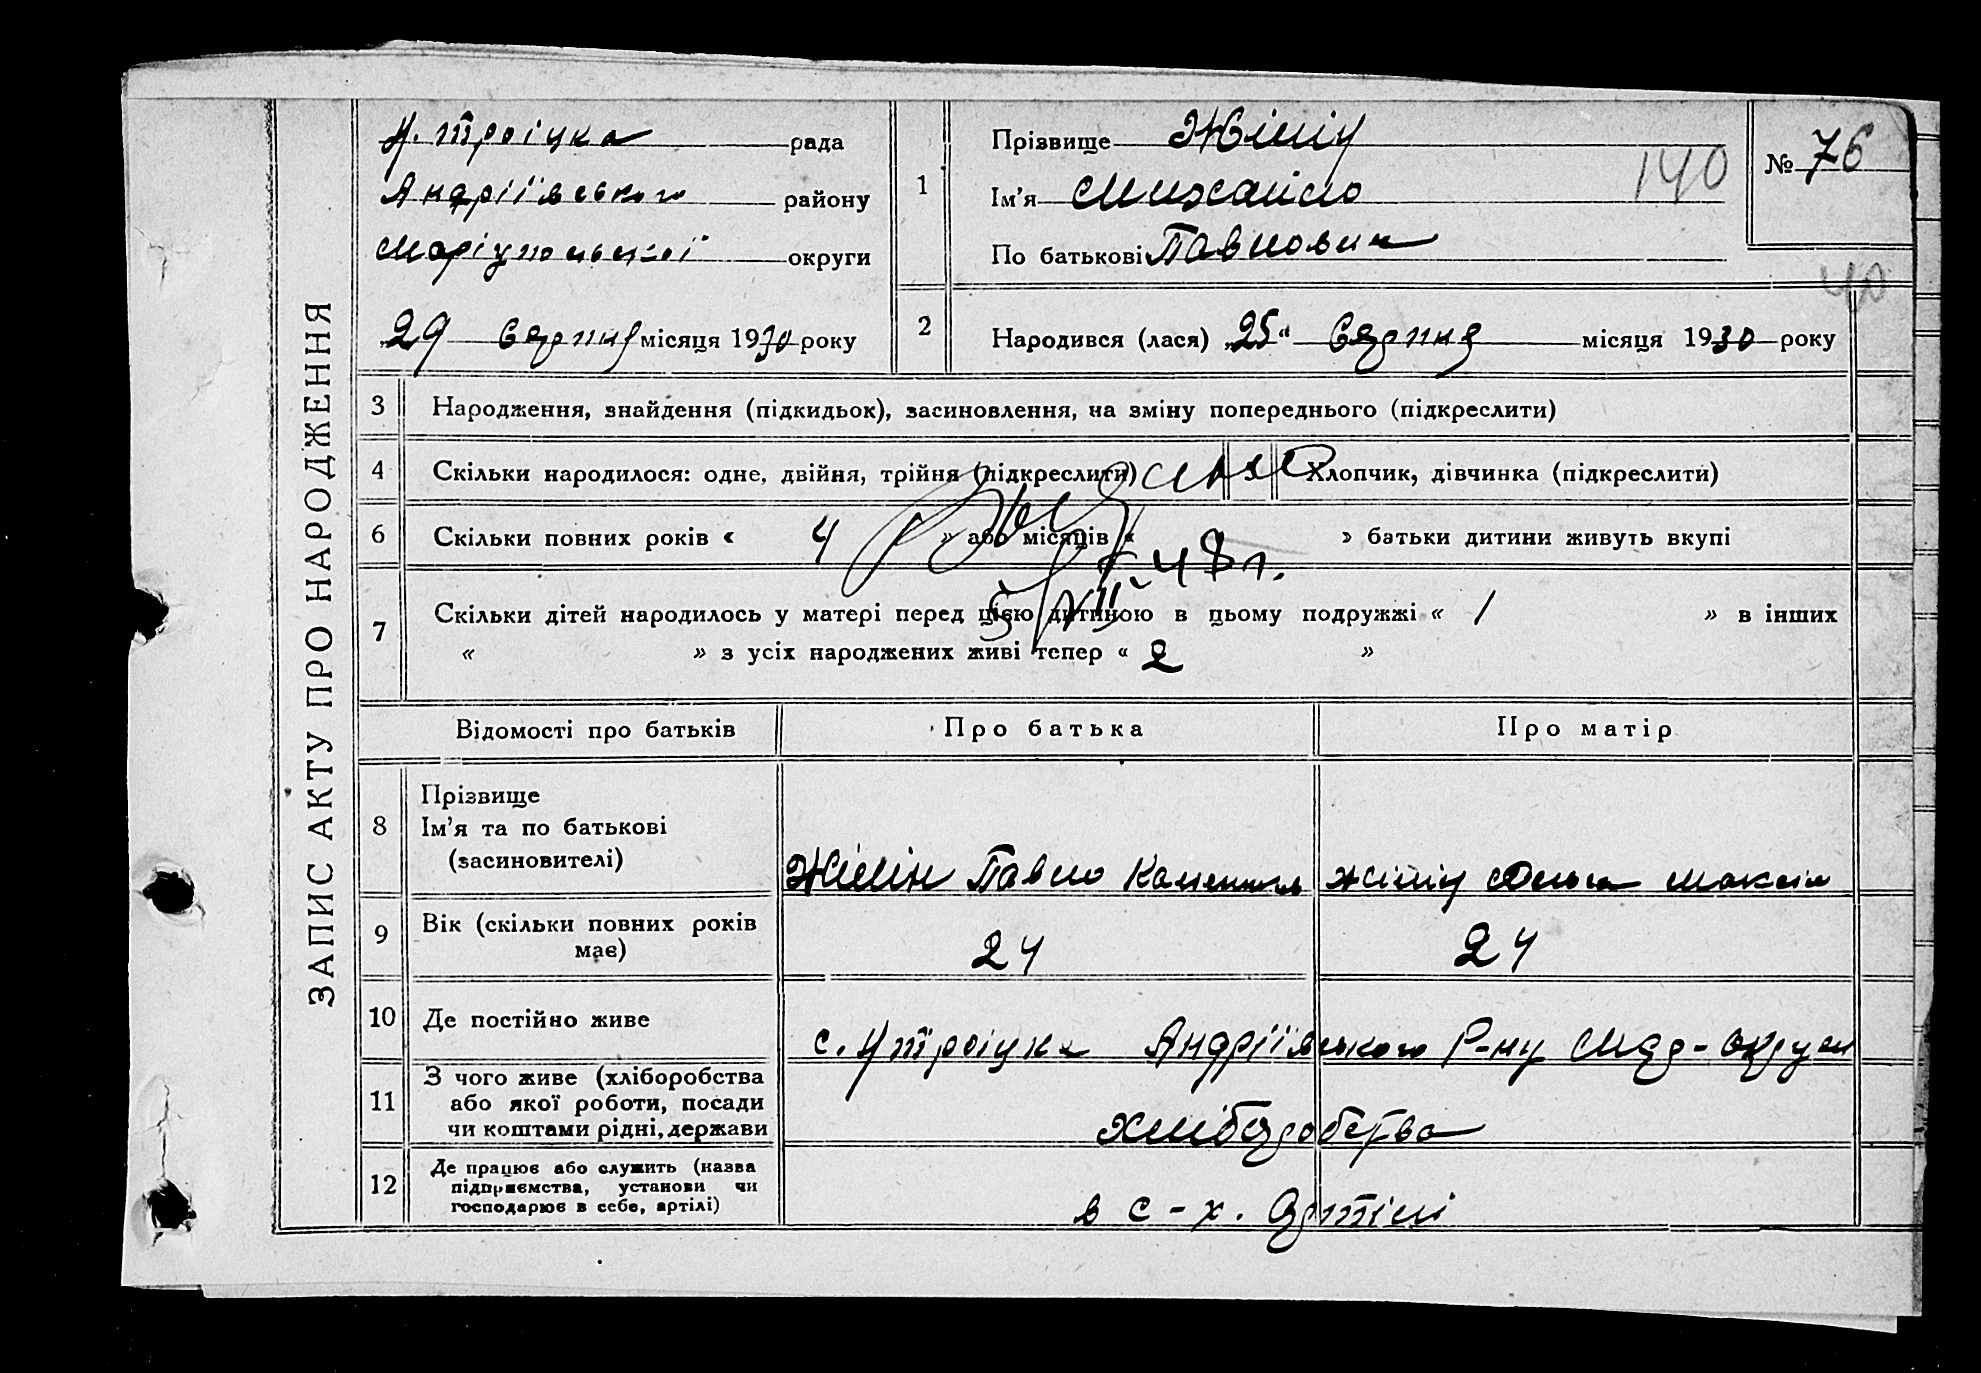 ЗАПИС АКТУ ПРО НАРОДЖЕННЯ
Н. Троіцка рада
Андріївського району
Маріупольської округи
29 Серпня місяця 1930 року
1
Прізвище Жілін
Ім’я Михайло
По батькові Павлович
140
№ 76
40
2
Народився (лася) „25“ Серпня місяця 1930 року
3 Народження, знайдення (підкидьок), засиновлення, на зміну попереднього (підкреслити)
4 Скільки народилося: одне, двійня, трійня (підкреслити) 5 Хлопчик, дівчинка (підкреслити)
6 Скільки повних років « 4 » або місяців « » батьки дитини живуть вкупі
5/VII 48 г.
7 Скільки дітей народилось у матері перед цією дитиною в цьому подружжі « 1 » в інших
« » з усіх народжених живі тепер « 2 »
Відомості про батьків Про батька Про матір
8 Прізвище
Ім’я та по батькові
(засиновителі)
Жілін Павло Жілін Ольга Максім
9 Вік (скільки повних років
має)
24 24
10 Де постійно живе
с. Н Троіцка Андріївського Р-ну Мар-округи
11 З чого живе (хліборобства
або якої роботи, посади
чи коштами рідні, держави
хліборобства
12 Де працює або служить (назва
підприємства, установи чи
господарює в себе, артілі)
в с-х. Артілі